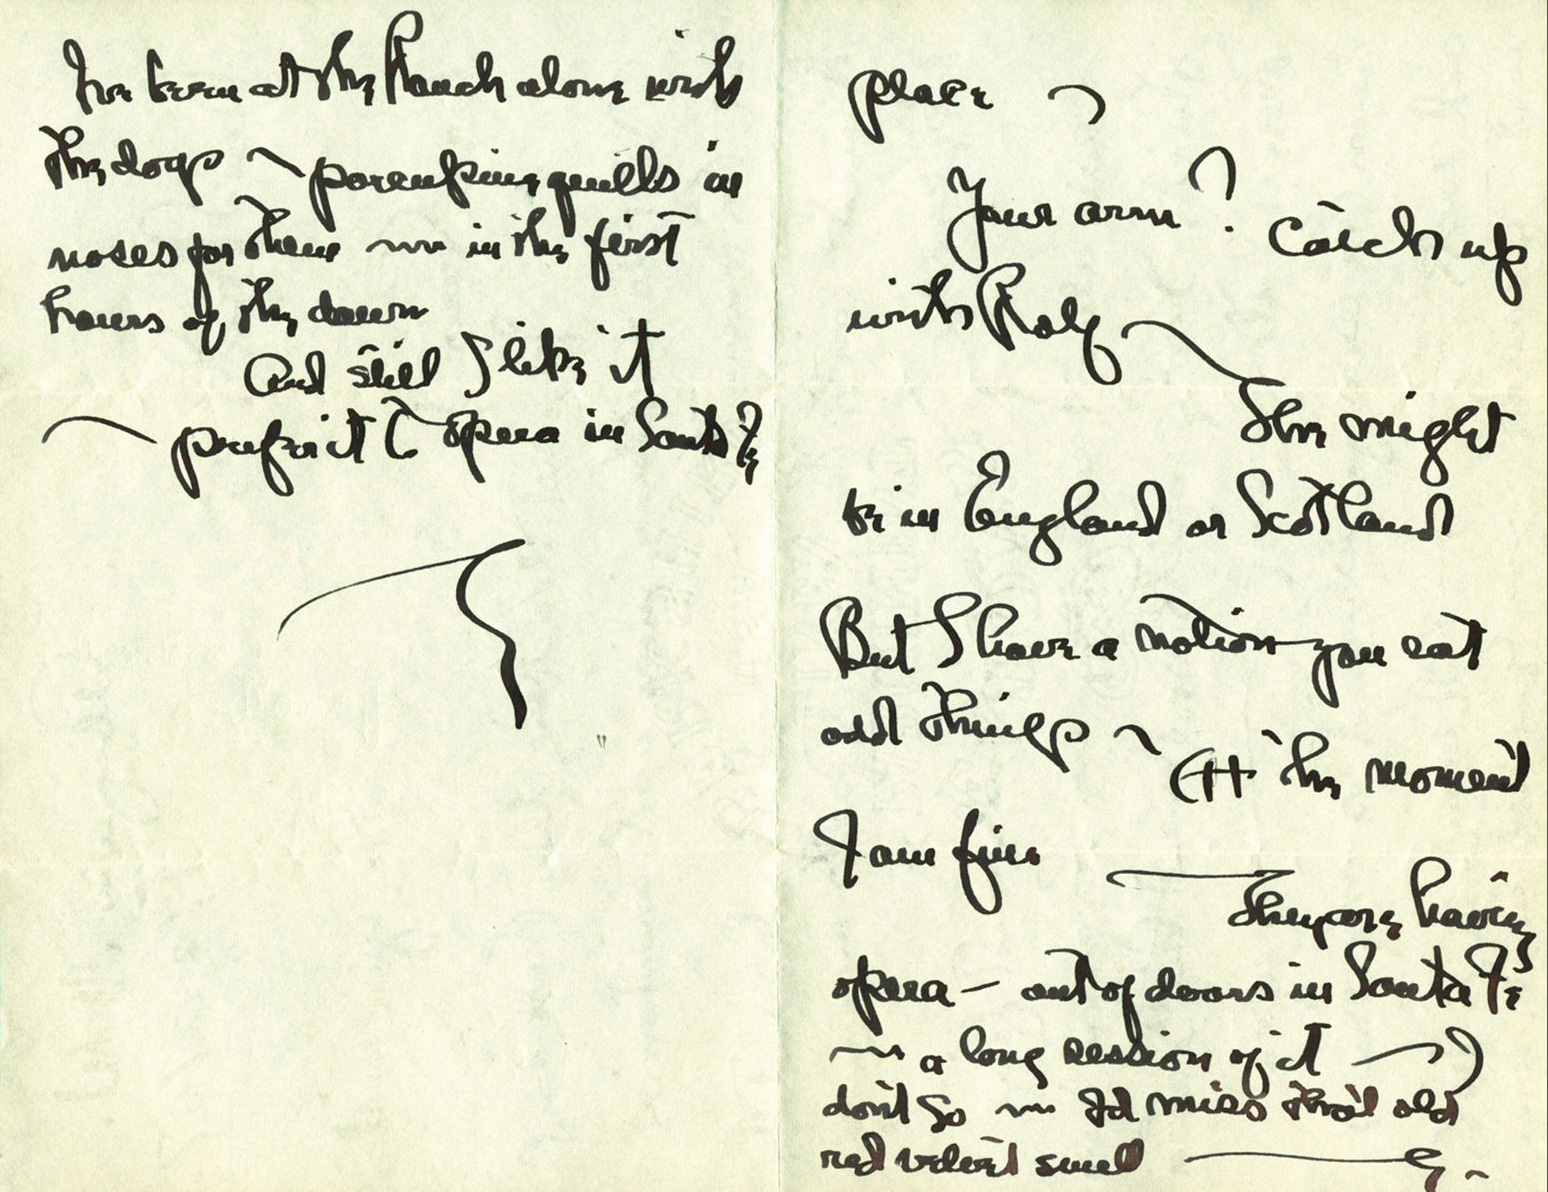 I've been at the Ranch alone with
the dogs ~ porcupine quills in
noses for them ~ in the first
hours of the dawn
And still I like it
~ prefer it to opera in Santa Fe
place ~
Your arm? Catch up
with Rolf ~
She might
be in England or Scotland
But I have a notion you eat
odd things ~ At the moment
I am fine
They are having
opera — out of doors in Santa Fe
~ a long session of it ~ I
don't go ~ I'd miss that old
red velvet smell